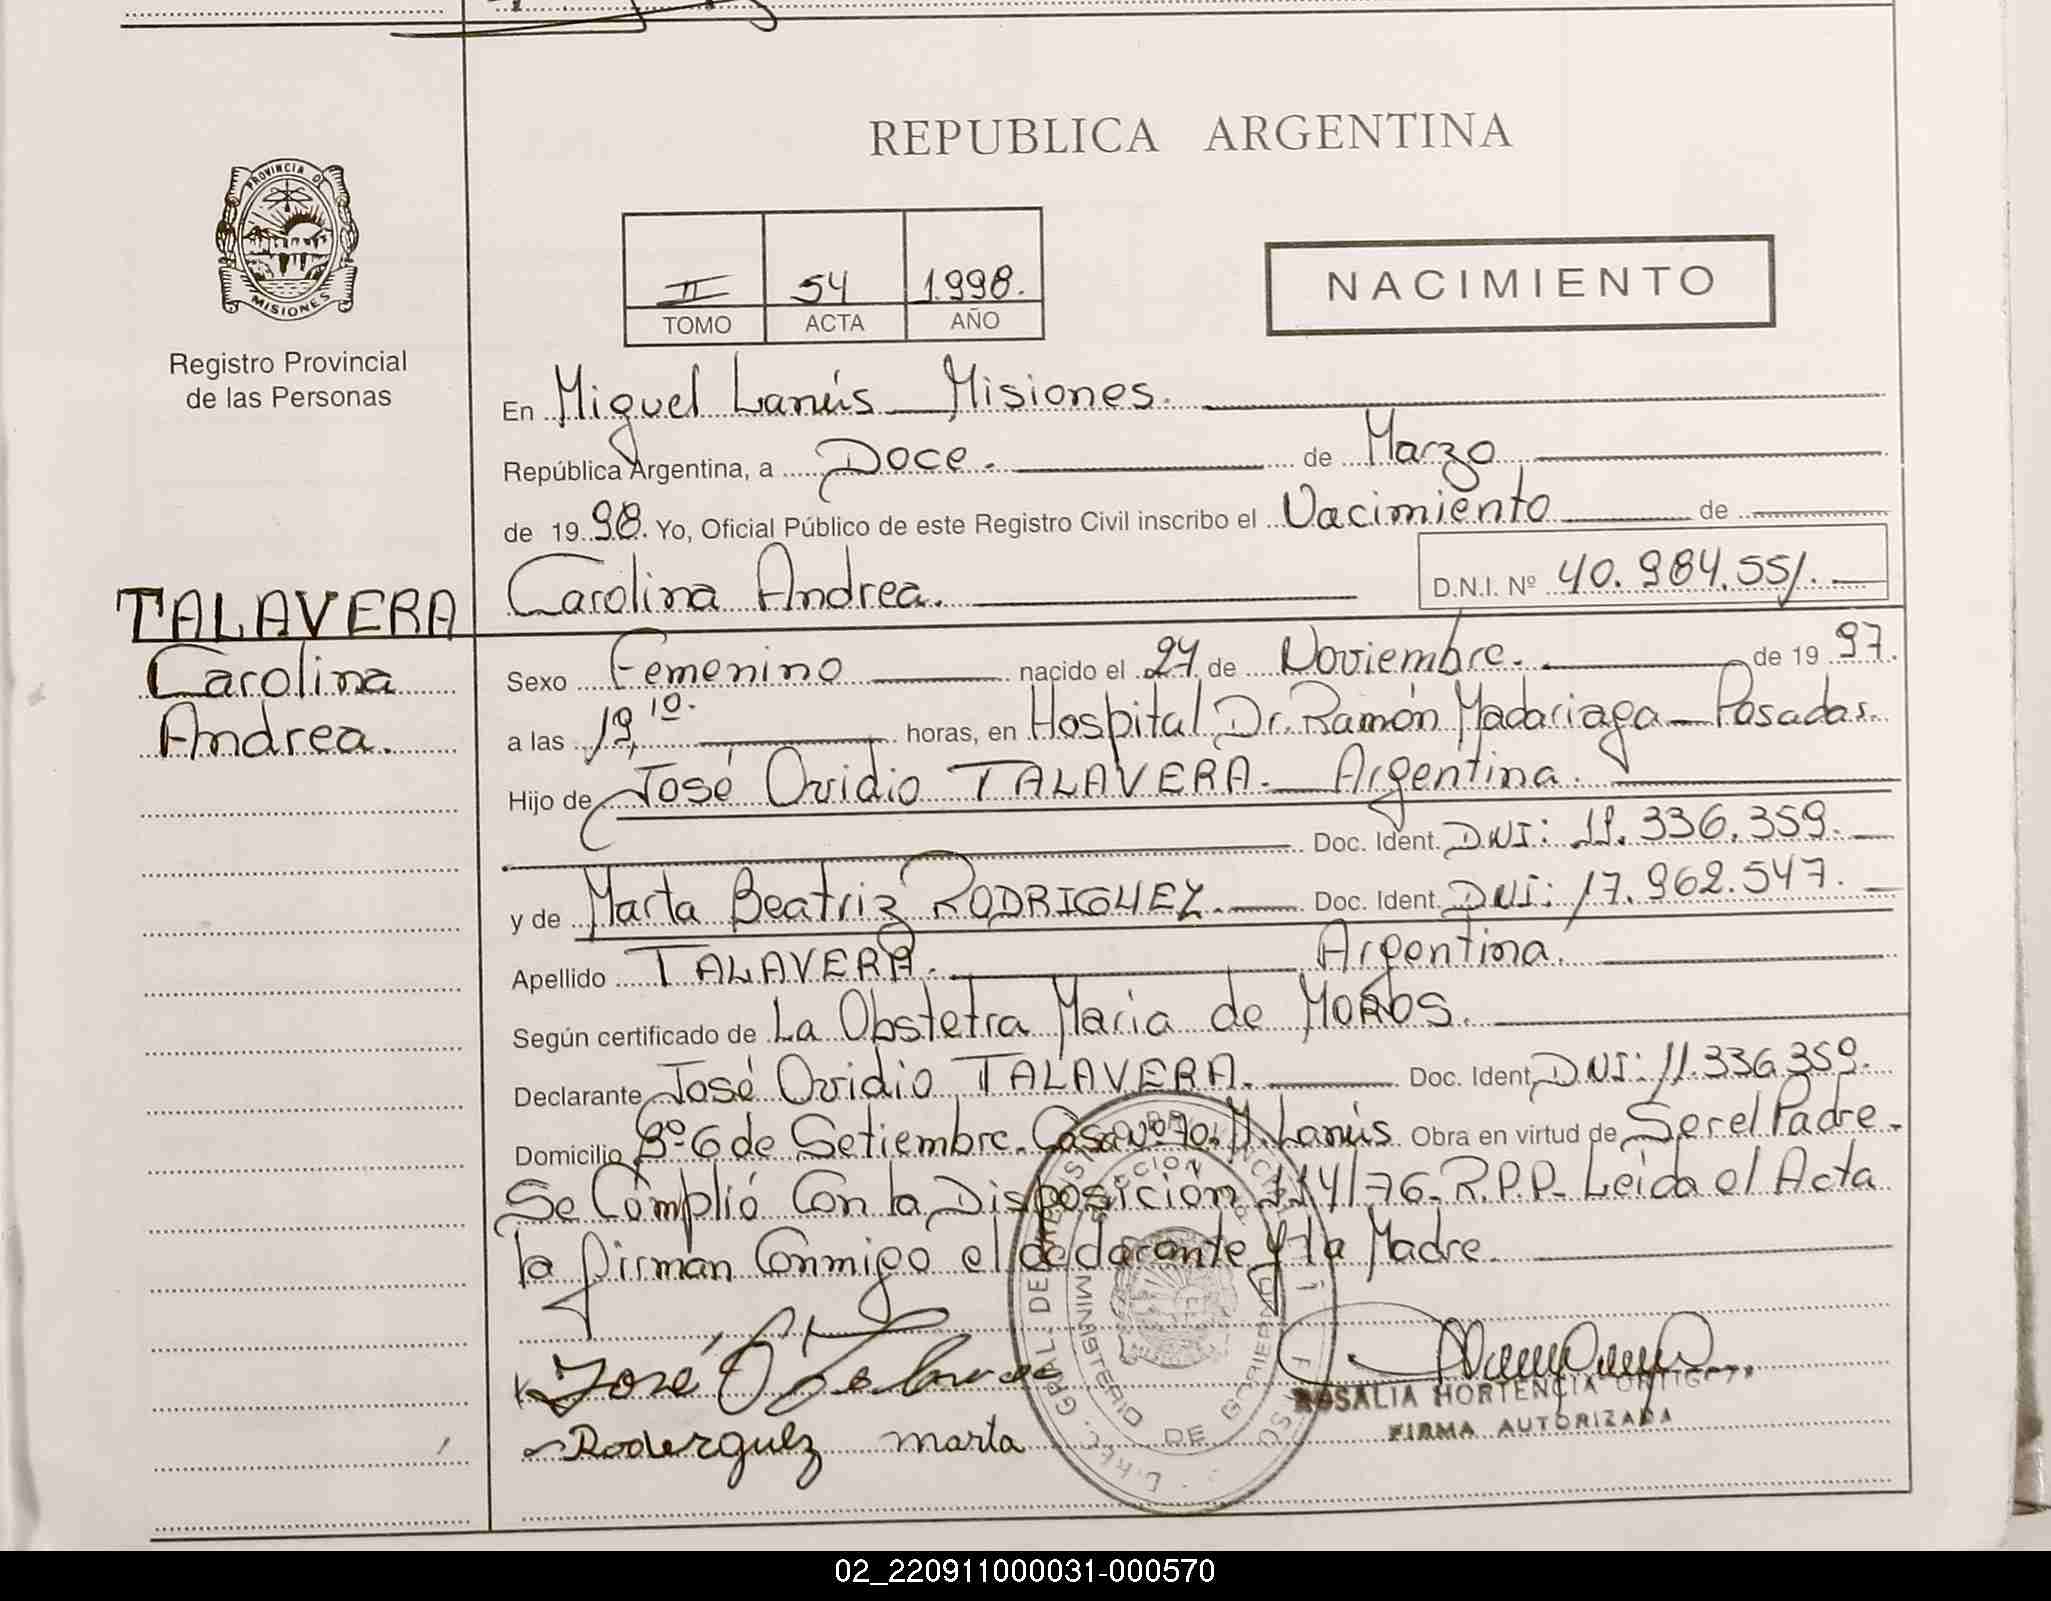 REPUBLICA ARGENTINA
PROVINCIA DE
MISIONES
Registro Provincial
de las Personas
II 54 1.998.
TOMO ACTA AÑO
NACIMIENTO
En Miguel Lanús Misiones.
República Argentina, a Doce. de Marzo
de 19 98. Yo, Oficial Público de este Registro Civil inscribo el Nacimiento de
Carolina Andrea. D.N.I. Nº 40.984.551.
TALAVERA
Carolina
Andrea.
Sexo Femenino nacido el 27 de Noviembre. de 19 97.
a las 19,10. horas, en Hospital Dr. Ramón Madariaga Posadas.
Hijo de José Ovidio TALAVERA. Argentina.
Doc. Ident. DNI: 11.336.359.
y de Marta Beatriz RODRIGUEZ. Doc. Ident. DNI: 17.962.547.
Apellido TALAVERA. Argentina.
Según certificado de La Obstetra Maria de
Declarante José Ovidio TALAVERA. Doc. Ident. DNI: 11.336.359.
Domicilio Bº 6 de Setiembre. Casa Nº 70. M. Lanús Obra en virtud de Ser el Padre.
Se Cumplió Con la Disposición 114/76-R.P.P. Leida el Acta
la firman Conmigo el declarante y la Madre.
José O Talavera
Roderguez marta
MINISTERIO DE GOBIERNO
ROSALIA HORTENCIA
FIRMA AUTORIZADA
02_220911000031-000570